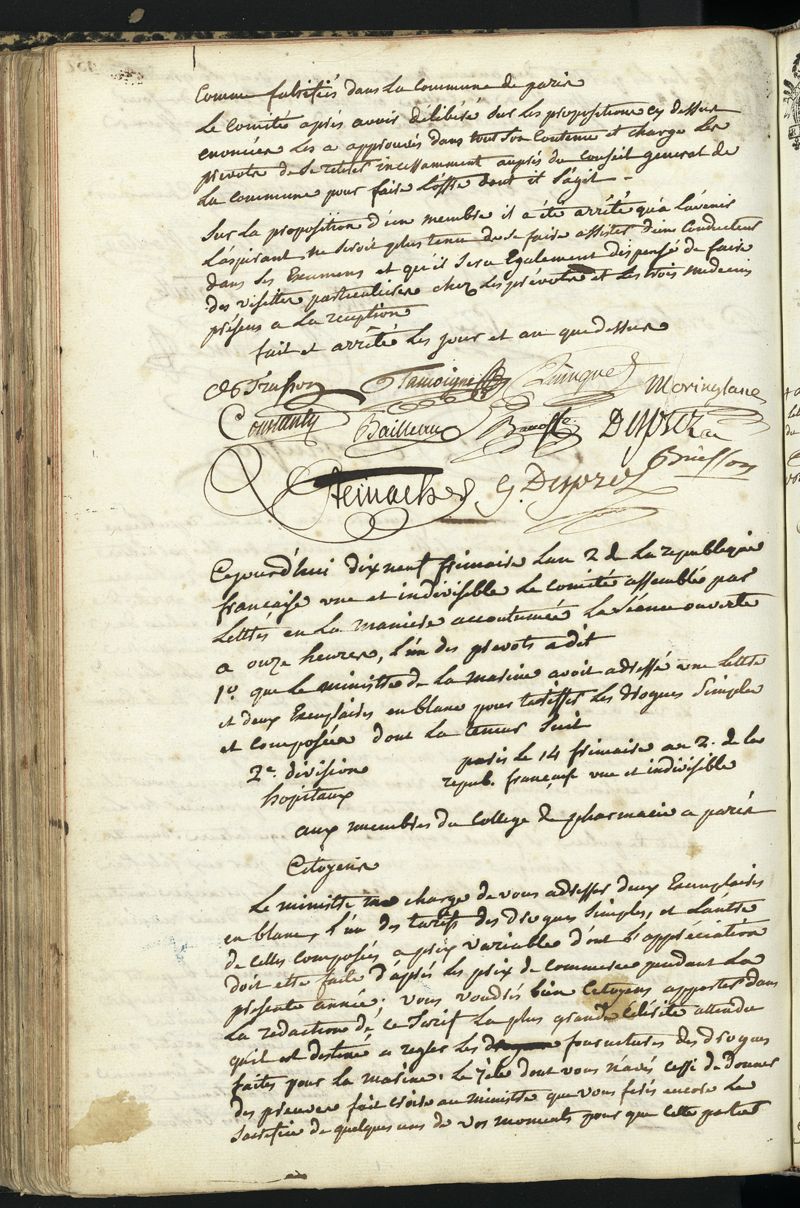 Comme falsifiés dans la commune de paris
Le Comité après avoir délibéré sur les propositions cy dessus
enoncées les a approuvés dans tout son contenu et charge les
prevots de se retirer incessamment auprès du Conseil general de
la Commune pour faire l'offre dont il s'agit -
Sur la proposition d'un membre il a été arrêté qu'a l'avenir
L'aspirant ne seroit plus tenu de se faire assister d'un Conducteur
dans les Examens et qu'il sera Egalement dispensé de faire
des visittes particulieres chez les prévots et les trois medecins
présens a la reception
fait et arrêté les jour et an que dessus
Trusson Tamoigne Quinquet Moringlane
Constanty Bailleau Duprez
Steinacher G. Duprez Buisson
Cejourd'hui dix neuf frimaire L'an 2 de la republique
française une et indivisible Le Comité assemblé par
Lettres en la maniere accoutumée La Séance ouverte
a onze heures, l'un des prevots a dit
1°. que le ministre de la marine avoit adressé une lettre
et deux Exemplaires en blanc pour tariffer les drogues Simples
et composées dont la teneur Suit
paris le 14 frimaire an 2. de la
2e. division
repub. françause une et indivisible
hopitaux
aux membres du College de pharmacie a paris
Citoyens
Le ministre me charge de vous adresser deux Exemplaires
en blanc, l'un des tarifs des drogues Simples, et L'autre
de celles composés a prix variable d'ont l'appréciation
doit etre faite d'après les prix de commerce pendant la
presente année; vous voudrés bien Citoyens apporter dans
la redaction de ce Tarif la plus grande Célérité attendu
qu'il est destiné a regler les fournitures des drogues
faites pour la marine. Le Zèle dont vous n'avés cessé de donner
des preuves fait croire au ministre que vous ferés encore le
Sacrifice de quelques uns de vos moments pour que cette